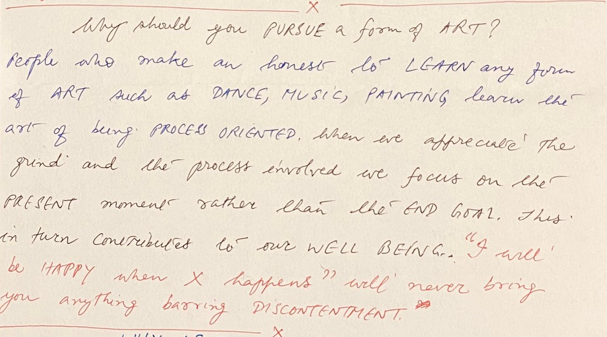 X
Why should you PURSUE a form of ART?
People who make an honest to LEARN any form
of ART such as DANCE, MUSIC, PAINTING learn the
art of being PROCESS ORIENTED. When we appreciate the
grind and the process involved we focus on the
PRESENT moment rather than the END GOAL. This
in turn contributes to our WELL BEING.. "I will
be HAPPY when X happens" will never bring
you anything barring DISCONTENTMENT."
X